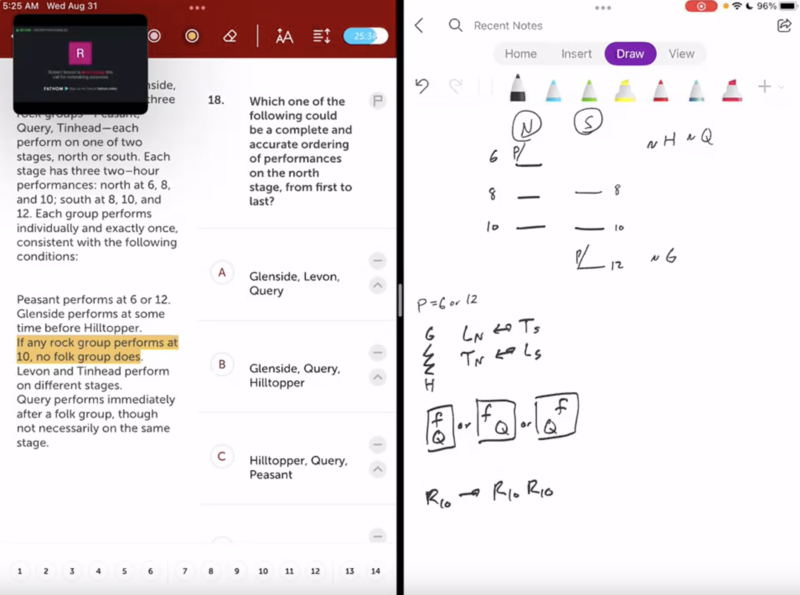 5:25 AM Wed Aug 31
96%
R
FATHOM
25:34
AA
nside,
three
rock groups—Peasant,
Query, Tinhead—each
perform on one of two
stages, north or south. Each
stage has three two–hour
performances: north at 6, 8,
and 10; south at 8, 10, and
12. Each group performs
individually and exactly once,
consistent with the following
conditions:
Peasant performs at 6 or 12.
Glenside performs at some
time before Hilltopper.
If any rock group performs at
10, no folk group does.
Levon and Tinhead perform
on different stages.
Query performs immediately
after a folk group, though
not necessarily on the same
stage.
18.
Which one of the
following could
be a complete and
accurate ordering
of performances
on the north
stage, from first to
last?
A
Glenside, Levon,
Query
B
Glenside, Query,
Hilltopper
C
Hilltopper, Query,
Peasant
1 2 3 4 5 6 7 8 9 10 11 12 13 14
Recent Notes
Home Insert Draw View
N S
6 P/ ~H ~Q
8 8
10 10
P/ 12 ~G
P = 6 or 12
G L_N ↔ T_S
T_N ↔ L_S
H
f f f
Q or Q or Q
R10 → R10 R10